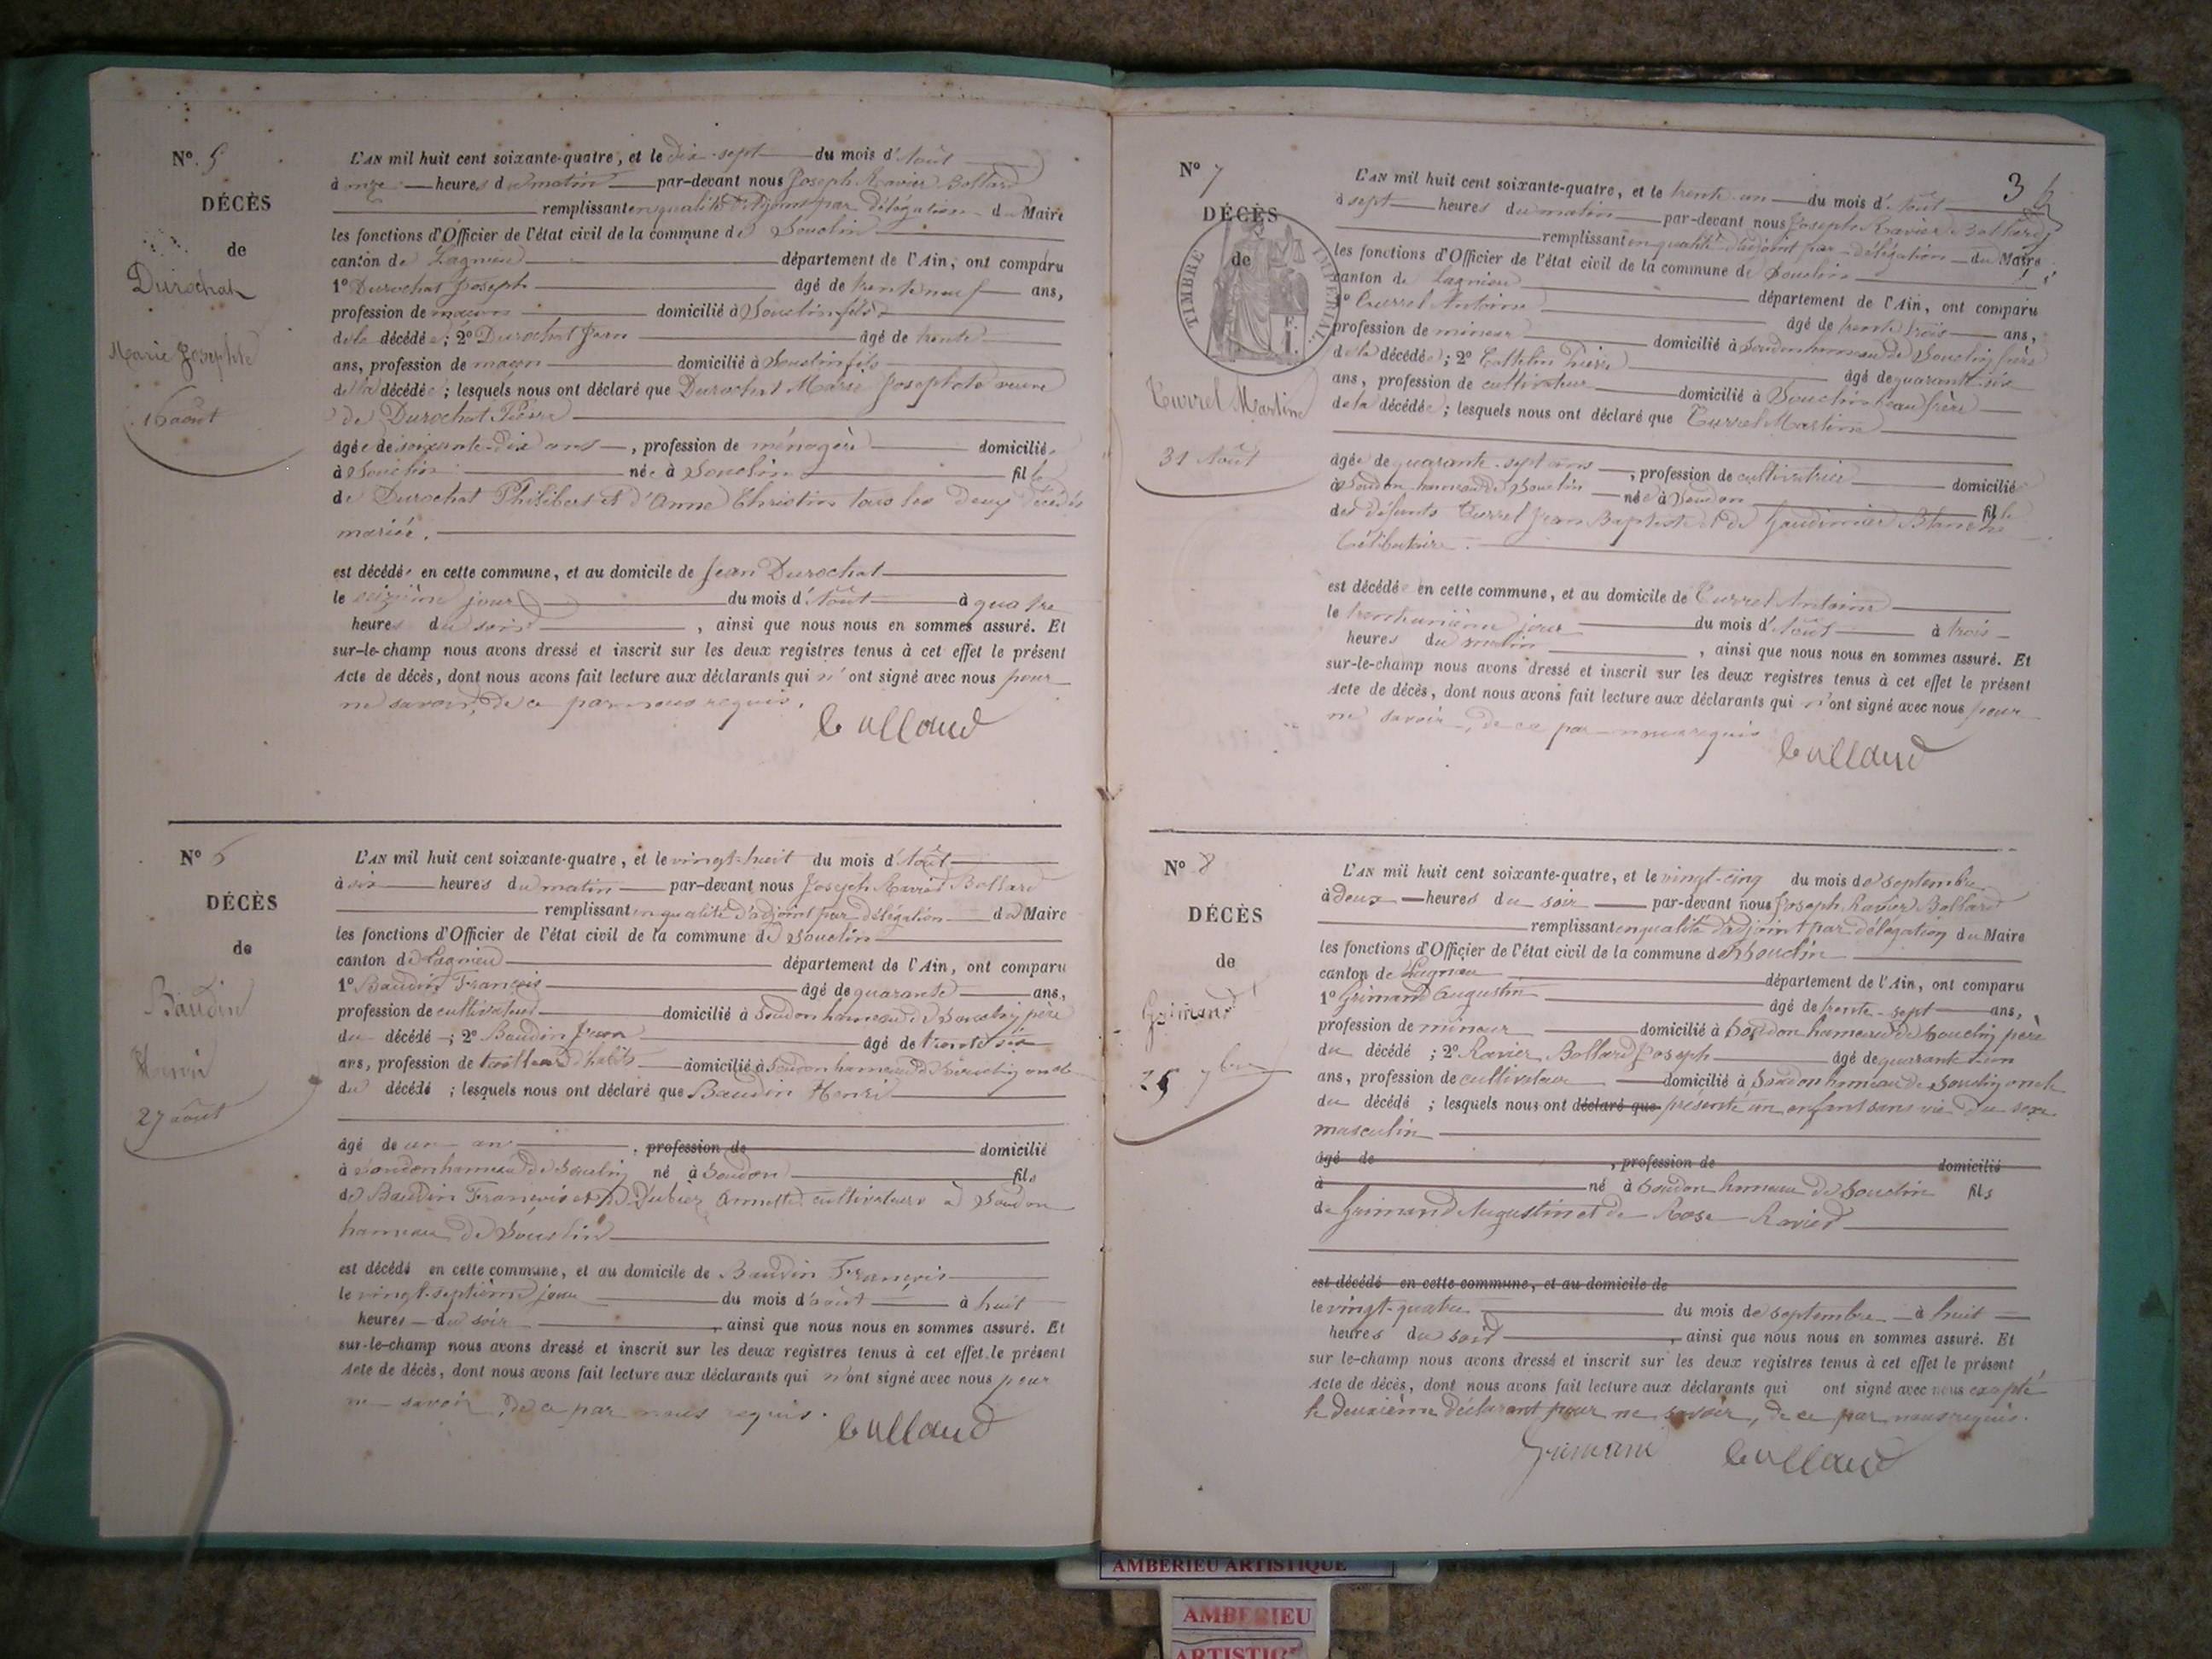 N° 5
DÉCÈS
de
Durochat
Marie Josephte
16 août
L'AN mil huit cent soixante-quatre, et le dix-sept du mois d'Août
à onze heures du matin par-devant nous Joseph Ravier Bollard
remplissant en qualité d'adjoint par délégation du Maire
les fonctions d'Officier de l'état civil de la commune de Souclin
canton de Lagnieu département de l'Ain, ont comparu
1° Durochat Joseph âgé de trente neuf ans,
profession de maçon domicilié à Souclin fils
de la décédée; 2° Durochat Jean âgé de trente
ans, profession de maçon domicilié à Souclin fils
de la décédée; lesquels nous ont déclaré que Durochat Marie Josephte veuve
de Durochat Pierre
âgée de soixante-dix ans, profession de ménagère domiciliée
à Souclin née à Souclin fille
de Durochat Philibert et d'Anne Christin tous les deux décédés
mariée.
est décédée en cette commune, et au domicile de Jean Durochat
le seizième jour du mois d'Août à quatre
heures du soir, ainsi que nous nous en sommes assuré. Et
sur-le-champ nous avons dressé et inscrit sur les deux registres tenus à cet effet le présent
Acte de décès, dont nous avons fait lecture aux déclarants qui n'ont signé avec nous pour
ne savoir, de ce par nous requis.
Bollard
N° 6
DÉCÈS
de
Baudin
Henri
27 août
L'AN mil huit cent soixante-quatre, et le vingt-huit du mois d'Août
à six heures du matin par-devant nous Joseph Ravier Bollard
remplissant en qualité d'adjoint par délégation du Maire
les fonctions d'Officier de l'état civil de la commune de Souclin
canton de Lagnieu département de l'Ain, ont comparu
1° Baudin François âgé de quarante ans,
profession de cultivateur domicilié à Soudon hameau de Souclin père
du décédé; 2° Baudin Jean âgé de trente six
ans, profession de tailleur d'habits domicilié à Soudon hameau de Souclin oncle
du décédé; lesquels nous ont déclaré que Baudin Henri
âgé de un an, profession de domicilié
à Soudon hameau de Souclin né à Soudon fils
de Baudin François et de Annette cultivateurs à Soudon
hameau de Souclin
est décédé en cette commune, et au domicile de Baudin François
le vingt-septième jour du mois d'août à huit
heures du soir, ainsi que nous nous en sommes assuré. Et
sur-le-champ nous avons dressé et inscrit sur les deux registres tenus à cet effet le présent
Acte de décès, dont nous avons fait lecture aux déclarants qui n'ont signé avec nous pour
ne savoir, de ce par nous requis.
Bollard
3
N° 7
DÉCÈS
de
TIMBRE IMPÉRIAL
Currel Martine
31 Août
L'AN mil huit cent soixante-quatre, et le trente-un du mois d'Août
à sept heures du matin par-devant nous Joseph Ravier Bollard
remplissant en qualité d'adjoint par délégation du Maire
les fonctions d'Officier de l'état civil de la commune de Souclin
canton de Lagnieu département de l'Ain, ont comparu
1° Currel Antoine âgé de trente trois ans,
profession de mineur domicilié à Soudon hameau de Souclin frère
de la décédée; 2° Pierre âgé de quarante-six
ans, profession de cultivateur domicilié à Souclin beau frère
de la décédée; lesquels nous ont déclaré que Currel Martine
âgée de quarante-sept ans, profession de cultivatrice domiciliée
à Soudon hameau de Souclin née à Soudon fille
des défunts Currel Jean Baptiste et de Blanche
Célibataire.
est décédée en cette commune, et au domicile de Currel Antoine
le trente unième jour du mois d'Août à trois
heures du matin, ainsi que nous nous en sommes assuré. Et
sur-le-champ nous avons dressé et inscrit sur les deux registres tenus à cet effet le présent
Acte de décès, dont nous avons fait lecture aux déclarants qui n'ont signé avec nous pour
ne savoir, de ce par nous requis
Bollard
N° 8
DÉCÈS
de
Grimand
25 7bre
L'AN mil huit cent soixante-quatre, et le vingt-cinq du mois de septembre
à deux heures du soir par-devant nous Joseph Ravier Bollard
remplissant en qualité d'adjoint par délégation du Maire
les fonctions d'Officier de l'état civil de la commune de Souclin
canton de Lagnieu département de l'Ain, ont comparu
1° Grimand Augustin âgé de trente-sept ans,
profession de mineur domicilié à Soudon hameau de Souclin père
du décédé; 2° Ravier Bollard Joseph âgé de quarante un
ans, profession de cultivateur domicilié à Soudon hameau de Souclin oncle
du décédé; lesquels nous ont déclaré que présenté un enfant sans vie du sexe
masculin
âgé de, profession de domicilié
à né à Soudon hameau de Souclin fils
de Grimand Augustin et de Rose Ravier
est décédé en cette commune, et au domicile de
le vingt-quatre du mois de septembre à huit
heures du soir, ainsi que nous nous en sommes assuré. Et
sur le-champ nous avons dressé et inscrit sur les deux registres tenus à cet effet le présent
Acte de décès, dont nous avons fait lecture aux déclarants qui ont signé avec nous excepté
le deuxième déclarant pour ne savoir, de ce par nous requis.
Grimand Bollard
AMBERIEU ARTISTIQUE
AMBERIEU
ARTISTIQ